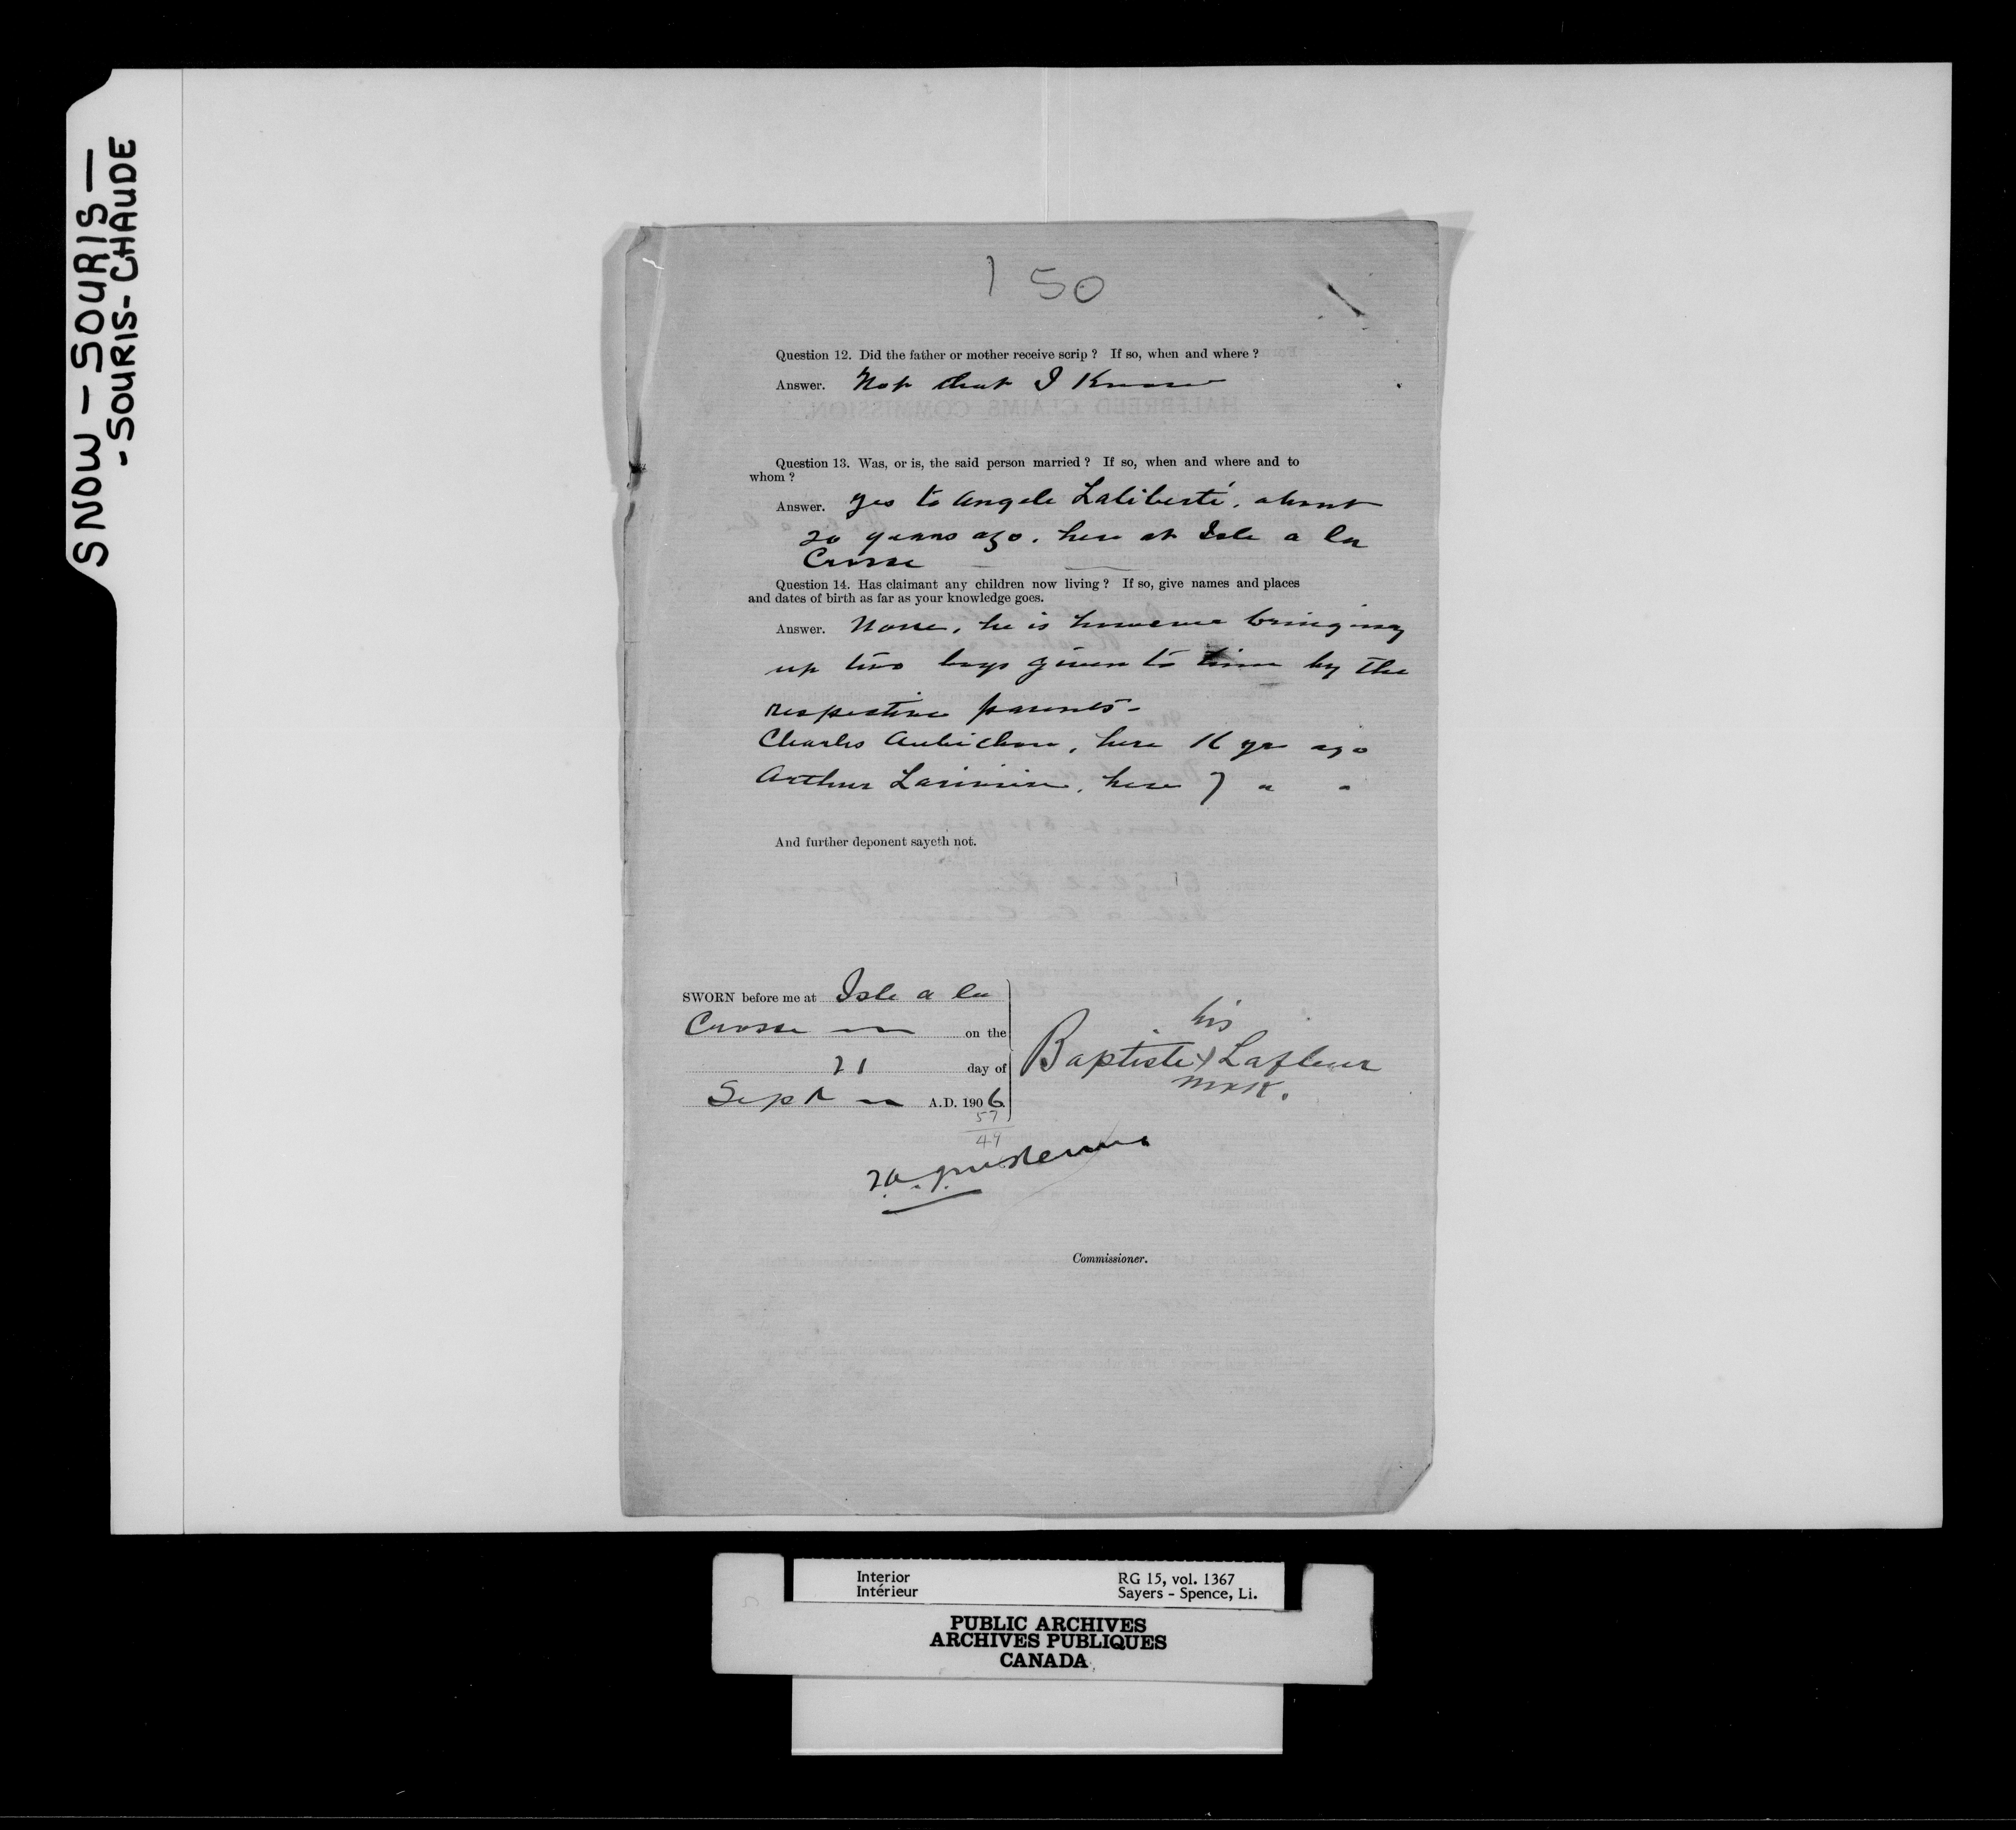 SNOW - SOURIS -
- SOURIS-CHAUDE
150
Question 12. Did the father or mother receive scrip? If so, when and where?
Answer. Not that I Know
HALFBREED CLAIMS COMMISSION.
Question 13. Was, or is, the said person married? If so, when and where and to
whom?
Answer. yes to Angele Laliberté, about
20 years ago. here at Isle a la
Crosse
Question 14. Has claimant any children now living? If so, give names and places
and dates of birth as far as your knowledge goes.
Answer. None, he is however bringing
up two boys given to him by the
respective parents -
Charles Aubichon, here 16 yrs ago
Arthur , here 7 " "
And further deponent sayeth not.
SWORN before me at Isle a la
Crosse on the
21 day of
Sept A.D. 1906
his
Baptiste x Lafleur
mark.
57
49
Commissioner.
Interior
Intérieur
RG 15, vol. 1367
Sayers - Spence, Li.
PUBLIC ARCHIVES
ARCHIVES PUBLIQUES
CANADA